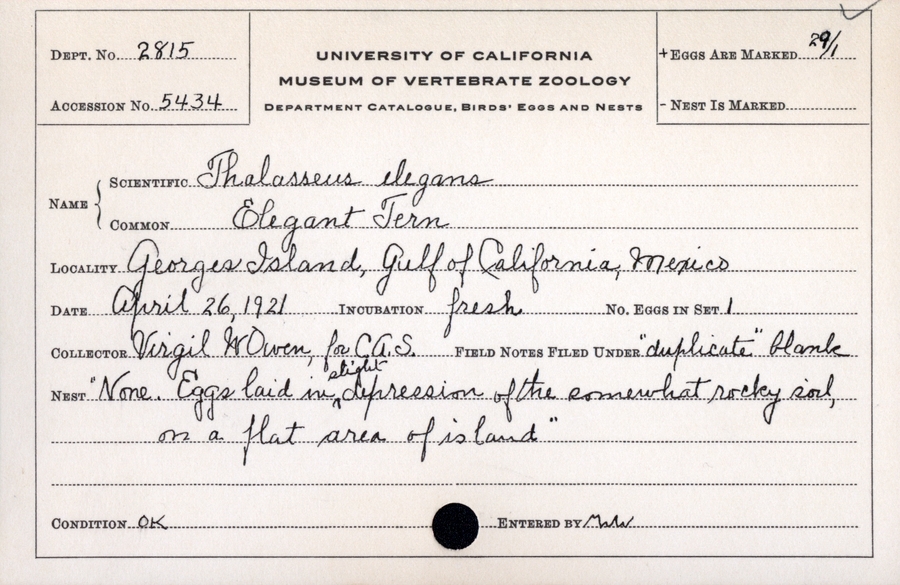 DEPT. NO. 2815
ACCESSION NO. 5434
UNIVERSITY OF CALIFORNIA
MUSEUM OF VERTEBRATE ZOOLOGY
DEPARTMENT CATALOGUE, BIRDS' EGGS AND NESTS
+ EGGS ARE MARKED 29/1
- NEST IS MARKED
NAME
SCIENTIFIC Thalasseus elegans
COMMON Elegant Tern
LOCALITY Georges Island, Gulf of California, Mexico
DATE April 26, 1921 INCUBATION fresh NO. EGGS IN SET 1
COLLECTOR Virgil W Owen, for C.A.S. FIELD NOTES FILED UNDER "duplicate" blank
NEST "None. Eggs laid in slight depression of the somewhat rocky soil,
on a flat area of island"
CONDITION OK ENTERED BY